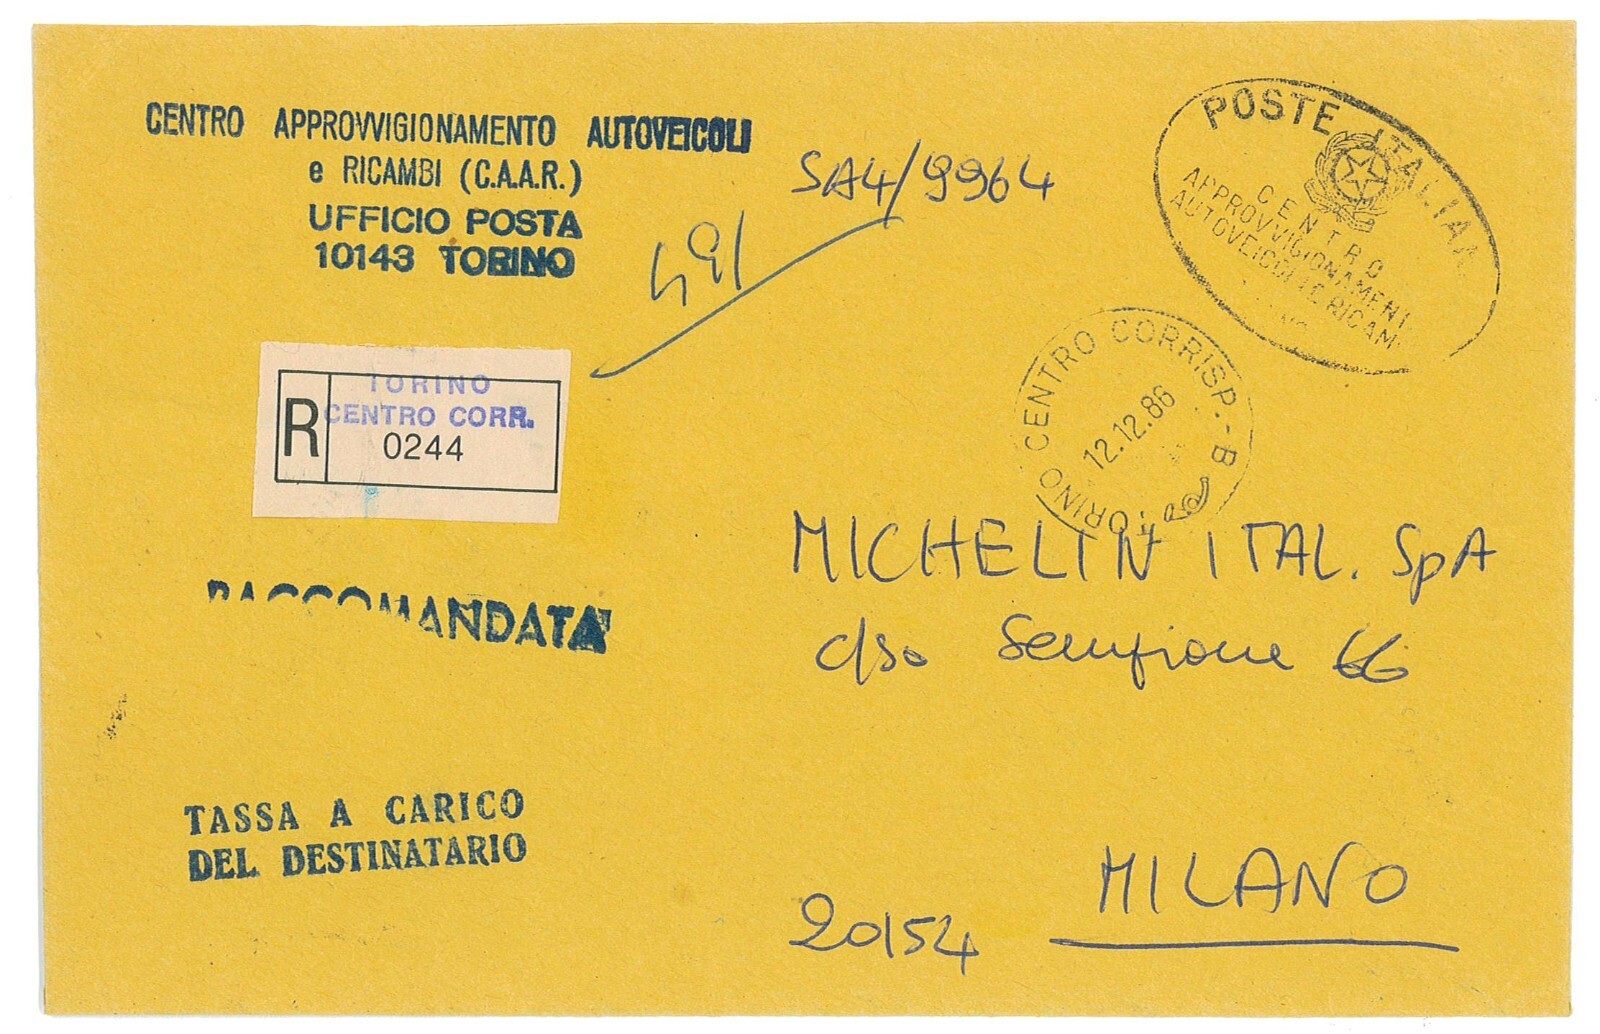 CENTRO APPROVVIGIONAMENTO AUTOVEICOLI
e RICAMBI (C.A.A.R.)
UFFICIO POSTA
10143 TORINO
SA4/9964
POSTE ITALIAN
CENTRO
APPROVVIGIONAMENT
AUTOVEICOLI E RICAM
TORINO
CENTRO CORR.
R
0244
TORINO CENTRO CORRISP. - B
12.12.86
RACCOMANDATA
MICHELIN ITAL. SpA
c/so Sempione 66
TASSA A CARICO
DEL DESTINATARIO
20154 MILANO